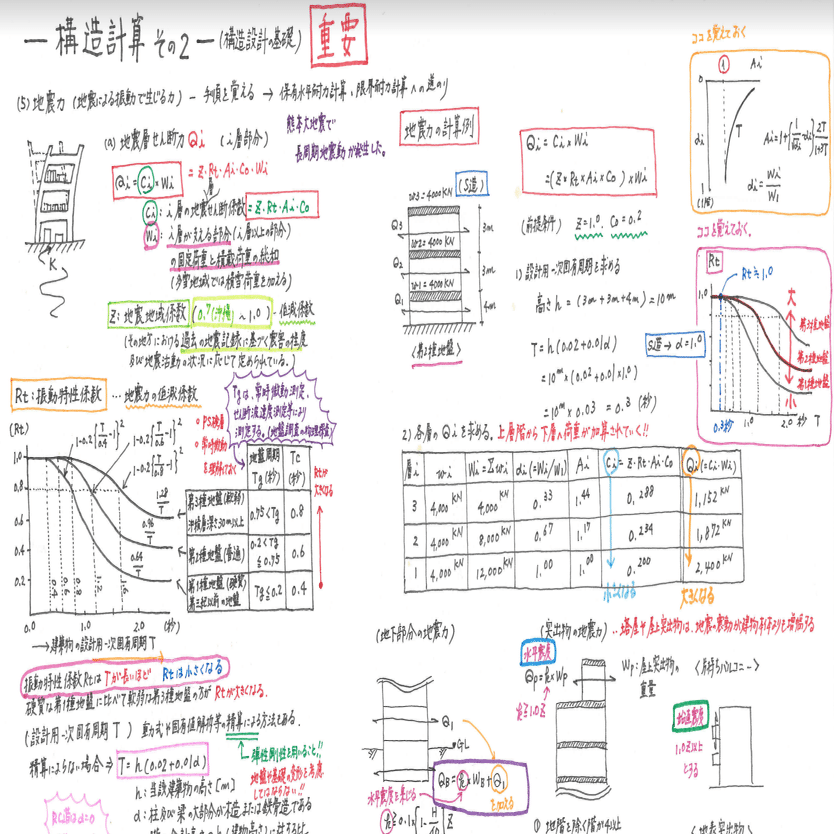 ― 構造計算 その2 ― (構造設計の基礎) 重要
(5) 地震力 (地震による振動で生じる力) ― 手順を覚える → 保有水平耐力計算、限界耐力計算への道のり
(a) 地震層せん断力 Qi (i層部分)
熊本大地震で
長周期地震動が発生した。
Qi = Ci × Wi = Z・Rt・Ai・Co・Wi
Ci : i層の地震せん断係数 = Z・Rt・Ai・Co
Wi : i層が支える部分(i層以上の部分)
の固定荷重と積載荷重の総和
(多雪地域では積雪荷重を加える)
K
Z : 地震地域係数 (0.7(沖縄) ~ 1.0) …低減係数
(その地方における過去の地震記録に基づく震害の程度
及び地震活動の状況に応じて定められている。)
Rt : 振動特性係数 … 地震力の低減係数
Tgは、常時微動測定、
せん断波速度測定等により
測定する。(地盤調査の物理探査)
・PS検層
・常時微動
(Rt)
1-0.2{T/0.4 -1}²
1-0.2{T/0.6 -1}²
1-0.2{T/0.8 -1}²
1.0
0.8
0.6
0.4
0.2
1.28/T
0.96/T
0.64/T
0.4 0.6 0.8 1.2 1.6
0 1.0 2.0 (秒)
→ 建築物の設計用一次固有周期 T
地盤周期 Tg (秒) Tc (秒)
第3種地盤(軟弱) 沖積層深さ30m以上 0.75<Tg 0.8
第2種地盤(普通) 0.2<Tg≦0.75 0.6
第1種地盤(硬質) 第三紀以前の地盤 Tg≦0.2 0.4
Rtが
大きくなる
振動特性係数RtはTが長いほど Rtは小さくなる
硬質な第1種地盤に比べて軟弱な第3種地盤の方がRtが大きくなる。
(設計用一次固有周期 T) 重力式か固有値解析等の精算による方法とある。
弾性剛性を用いること!!
地盤や基礎の変形を考慮
してはならない!!
精算によらない場合 ⇒ T = h(0.02+0.01α)
h : 当該建築物の高さ [m]
α : 柱及び梁の大部分が木造または鉄骨造である
RC造はα=0
地震力の計算例
(S造)
w3=4000KN
w2=4000KN
w1=4000KN
Q3
Q2
Q1
3m
3m
4m
<第2種地盤>
Qi = Ci × Wi
= (Z × Rt × Ai × Co) × Wi
(前提条件) Z=1.0、Co=0.2
1) 設計用一次固有周期を求める
高さ h = (3m+3m+4m) = 10m
T = h(0.02+0.01α)
= 10m × (0.02+0.01×1.0)
= 10m × 0.03 = 0.3 (秒)
S造→α=1.0
ココを覚えておく
0 1 Ai
αi T
1
(1階)
Ai = 1+{1/√αi -αi} 2T/1+3T
αi = Wi/W1
ココを覚えておく。
Rt
Rt≒1.0
1.0
大
小
第3種地盤
第2種地盤
第1種地盤
0.3秒 1.0 2.0秒 T
2) 各層のQiを求める。上層階から下層の荷重が加算されていく!!
層i wi Wi=Σwi αi(=Wi/W1) Ai Ci=Z・Rt・Ai・Co Qi(=Ci・Wi)
3 4,000KN 4,000KN 0.33 1.44 0.288 1,152KN
2 4,000KN 8,000KN 0.67 1.17 0.234 1,872KN
1 4,000KN 12,000KN 1.00 1.00 0.200 2,400KN
小さくなる 大きくなる
(地下部分の地震力)
Q1
GL
QB = k・WB + Q1
を加える
水平震度を乗じる
k≧0.1{1-H/40}Z
(突出物の地震力) …塔屋や屋上突出物は、地震の震動が建物本体よりも増幅する
水平震度
QP = k × WP
k≧1.0Z
WP : 屋上突出物の
重量
<片持ちバルコニー>
鉛直震度
1.0Z以上
とする
① 地階を除く階が4以上